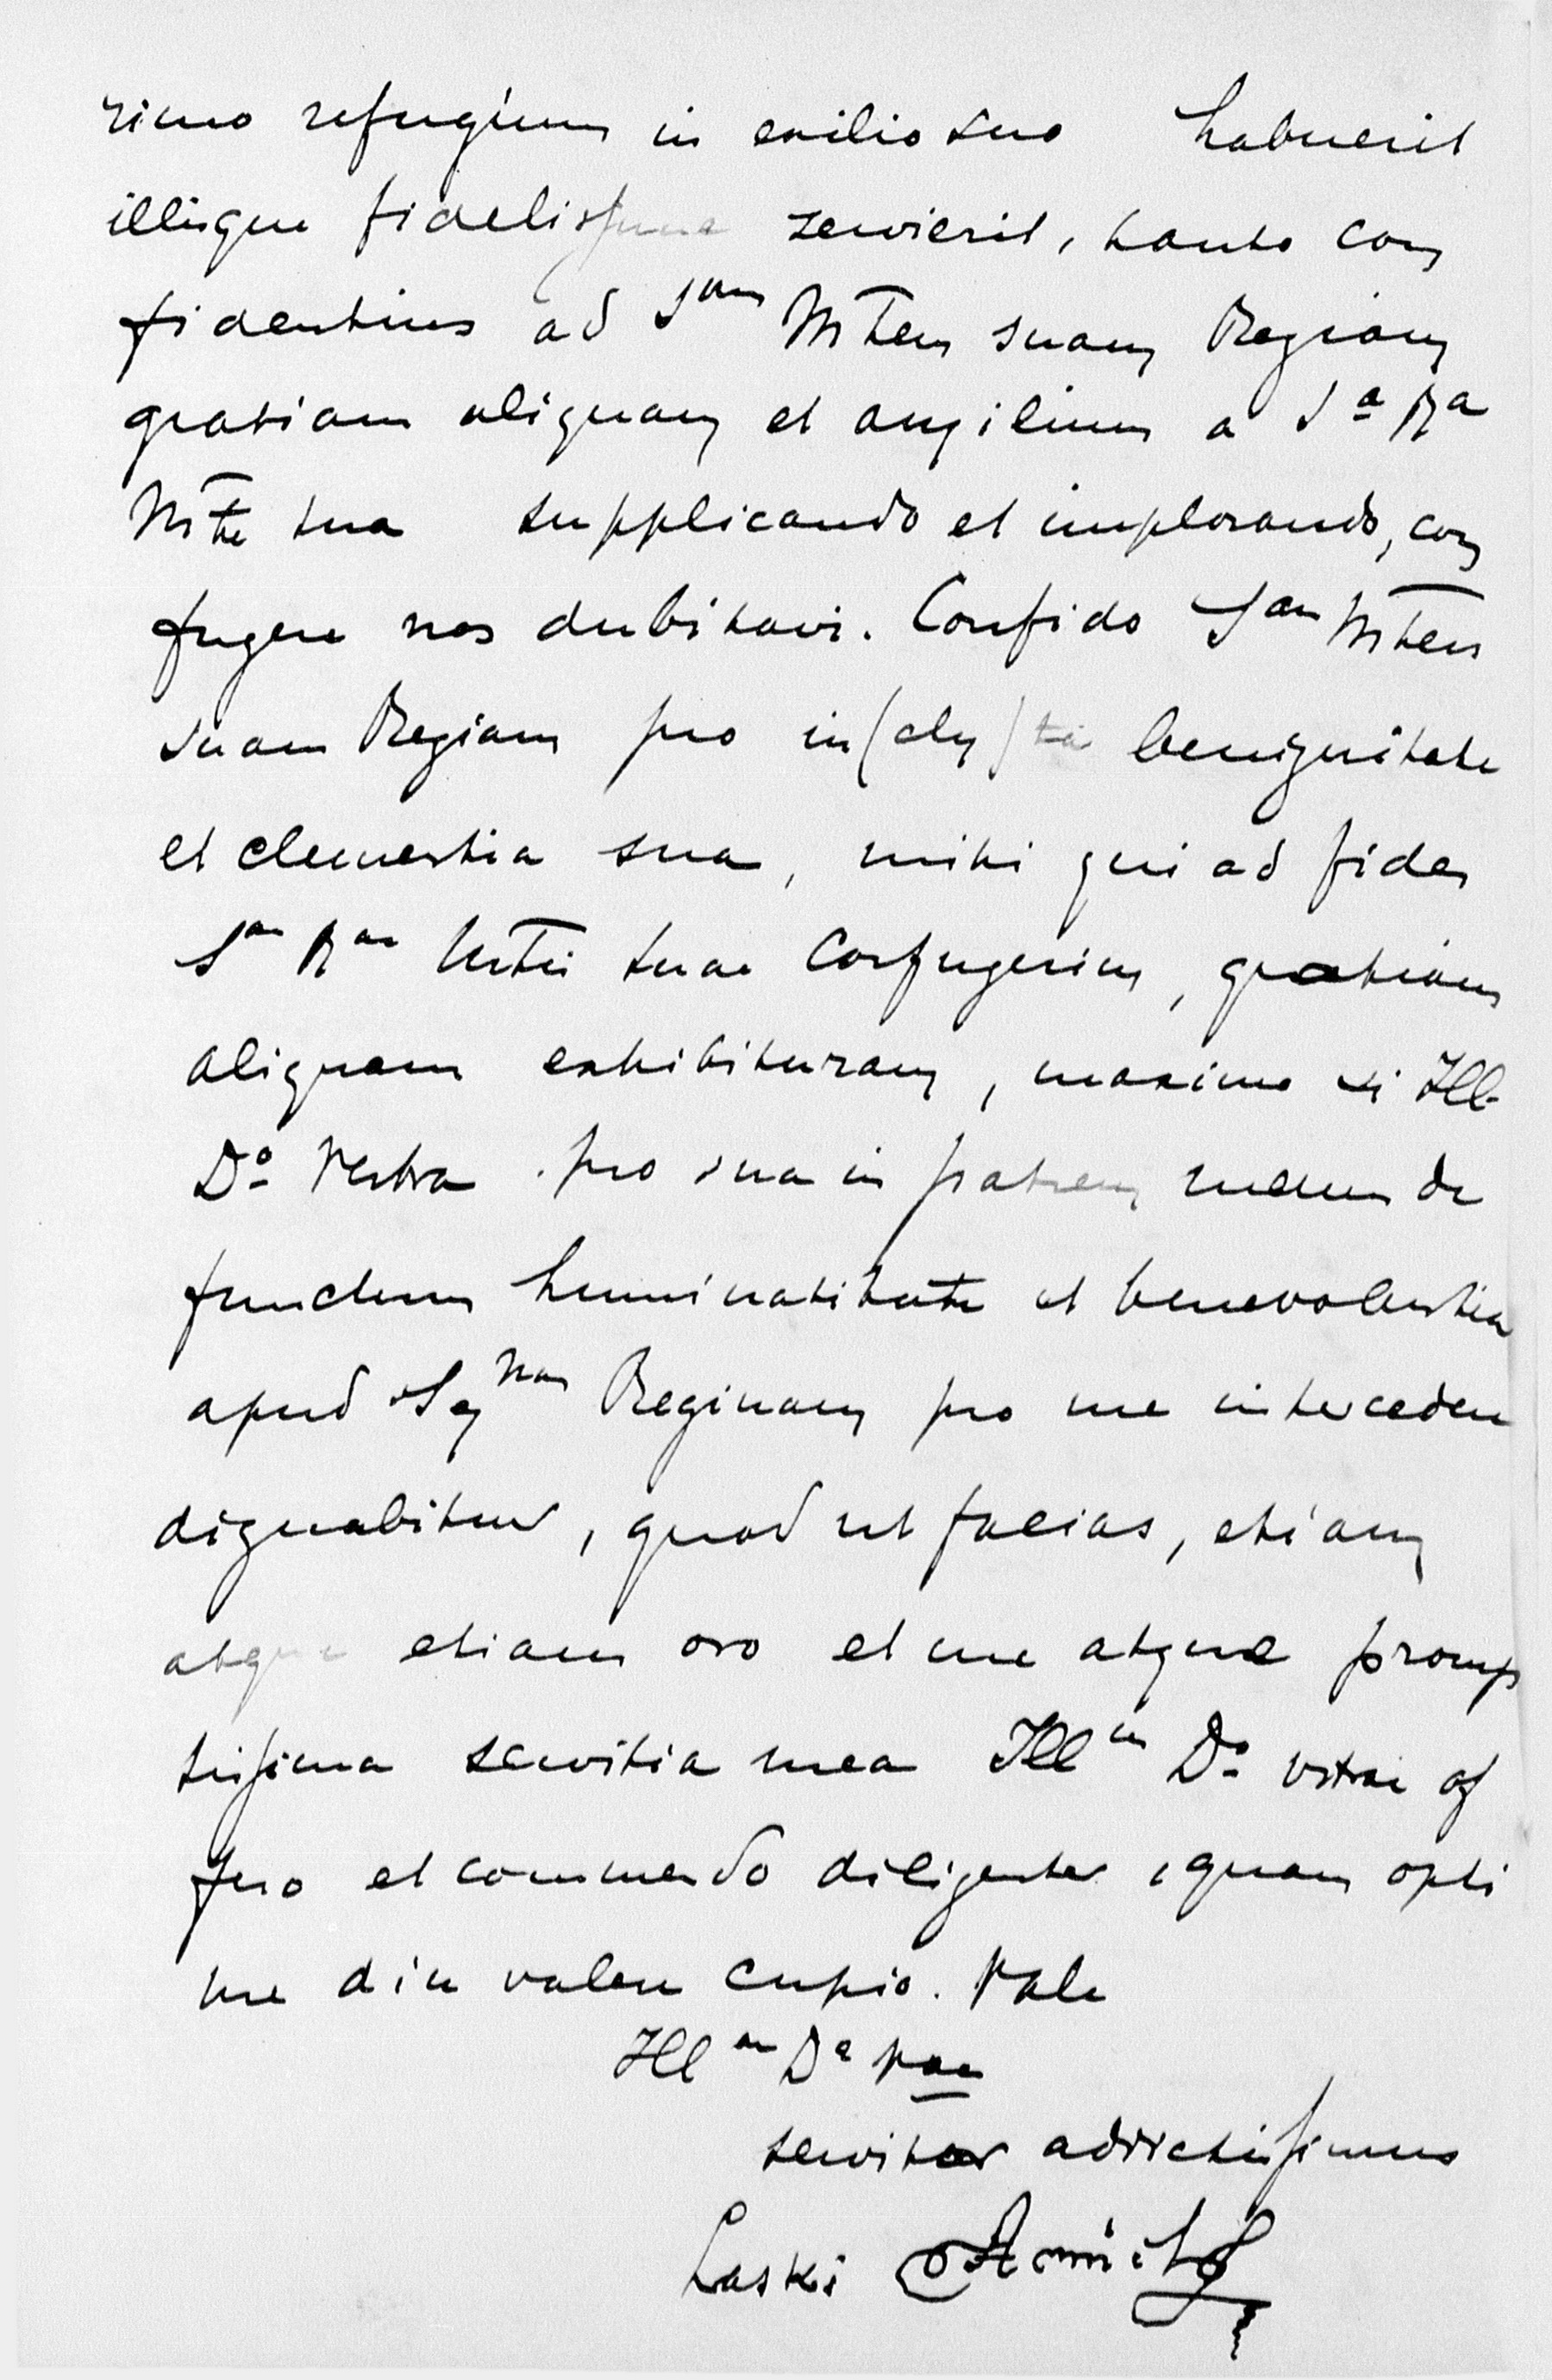 rimo refugium in exilio suo habuerit
illisque fidelissime servierit, tanto con
fidentius ad S^am Mtem suam Regiam
gratiam aliquam et auxilium a S^a R^a
Mte sua supplicando et implorando, con
fugere non dubitavi. Confido S^am Mtem
suam Regiam pro in(cly)ta benignitate
et clementia sua, mihi qui ad fidem
S^ae R^ae Mtis suae confugerim, gratiam
aliquam exhibituram, maxime si Ill
D^o Vestra pro sua in patrem meum de
functum huminatitate et benevolentia
apud Ser^nam Reginam pro me intercedere
dignabitur, quod ut facias, etiam
atque etiam oro et me atque promp
tissima servitia mea Ill^ae D^o vestrae of
fero et commendo diligenter, quam opti
me diu valere cupio. Vale
Ill^ae D^o Vrae
servitor addictissimus
Laski